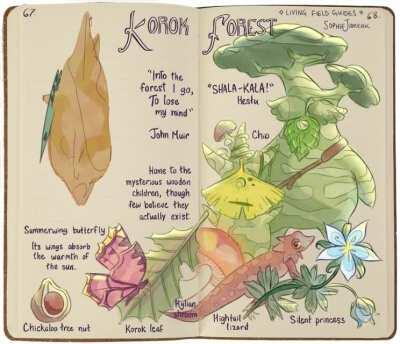 67.
KOROK FOREST
"Into the
forest I go,
To lose
my mind"
John Muir
Home to the
mysterious wooden
children, though
few believe they
actually exist
Summerwing butterfly
Its wings absorb
the warmth of
the sun.
Chickaloo tree nut
Korok leaf
* LIVING FIELD GUIDES *
68.
"SHALA-KALA!"
Hestu
Chio
Hylian
shroom
Hightail
lizard
Silent princess